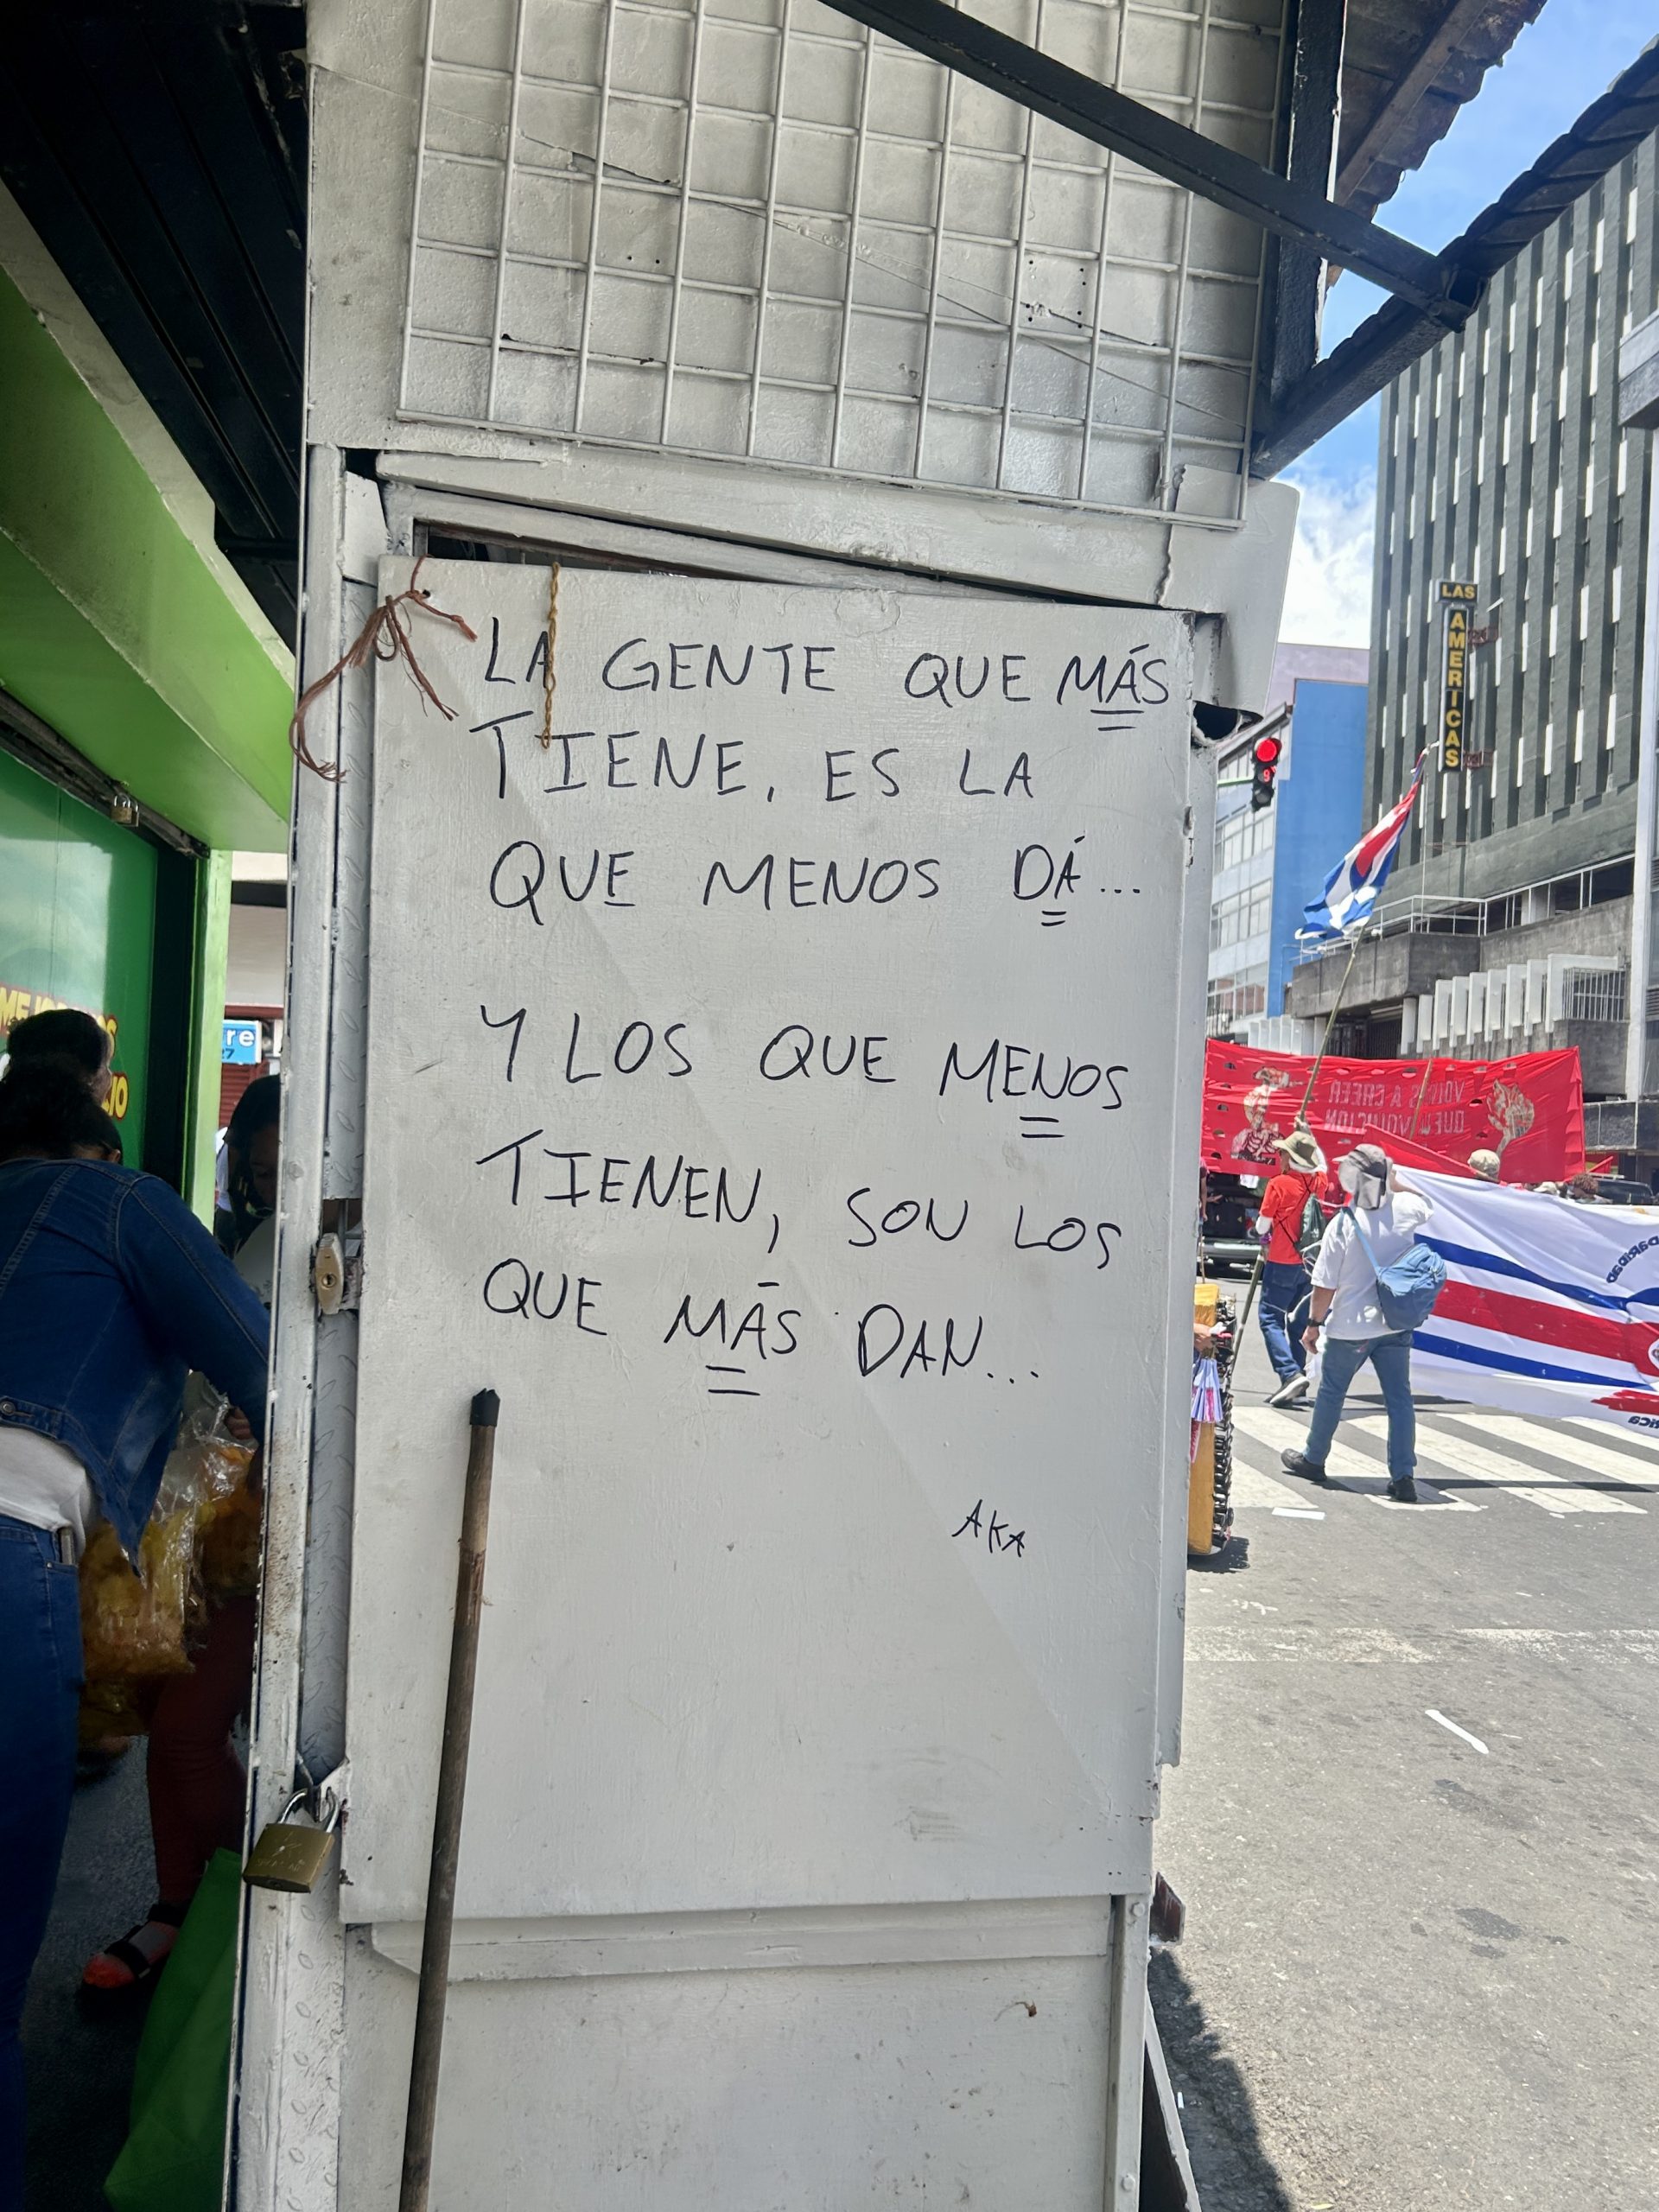 LA GENTE QUE MÁS
TIENE, ES LA
QUE MENOS DÁ...
Y LOS QUE MENOS
TIENEN, SON LOS
QUE MÁS DAN...
AKA
LAS
AMERICAS
9
re
27
VOLVÍ A CREER